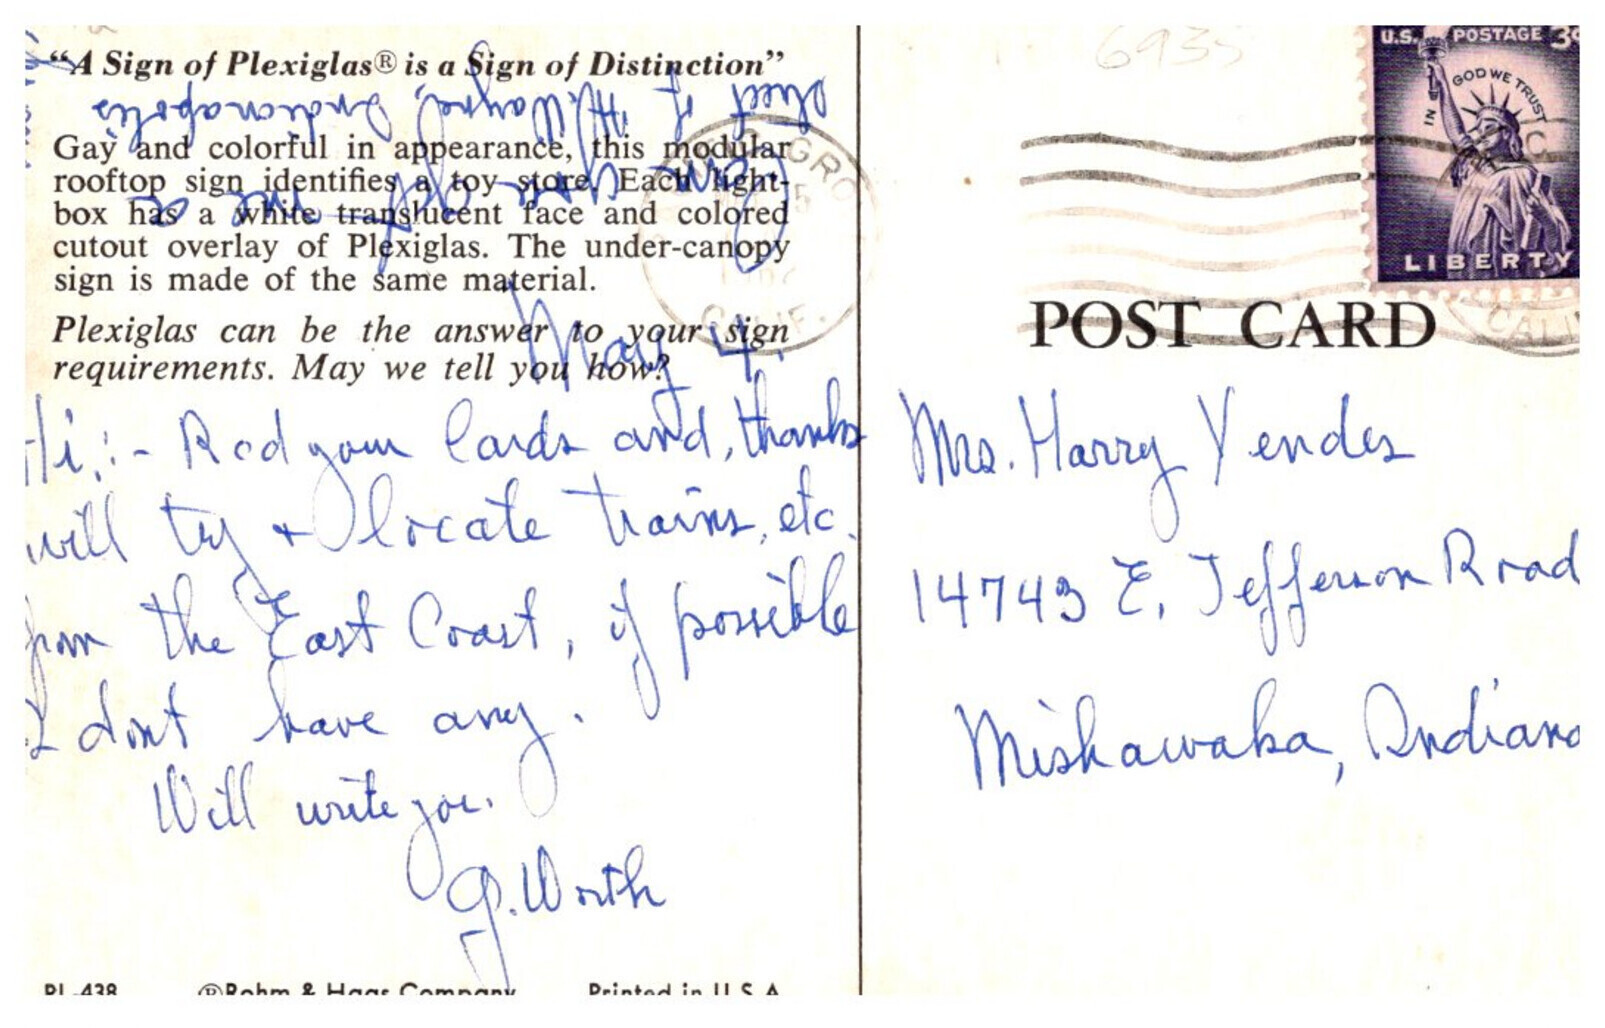 "A Sign of Plexiglas® is a Sign of Distinction"
Gay and colorful in appearance, this modular
rooftop sign identifies a toy store. Each light-
box has a white translucent face and colored
cutout overlay of Plexiglas. The under-canopy
sign is made of the same material.
Plexiglas can be the answer to your sign
requirements. May we tell you how?
May 4.
Hi:- Rec'd your Cards and, thanks
will try + locate trains, etc.
from the East Coast, if possible
I don't have any.
Will write you.
G. Worth
Can you get me a
sheet of Ft. Wayne, Indianapolis
PL-438 ®Rohm & Haas Company Printed in U.S.A.
6935
U.S. POSTAGE 3¢
IN GOD WE TRUST
LIBERTY
CALIF.
POST CARD
Mrs. Harry Yendes
14743 E. Jefferson Road
Mishawaka, Indiana